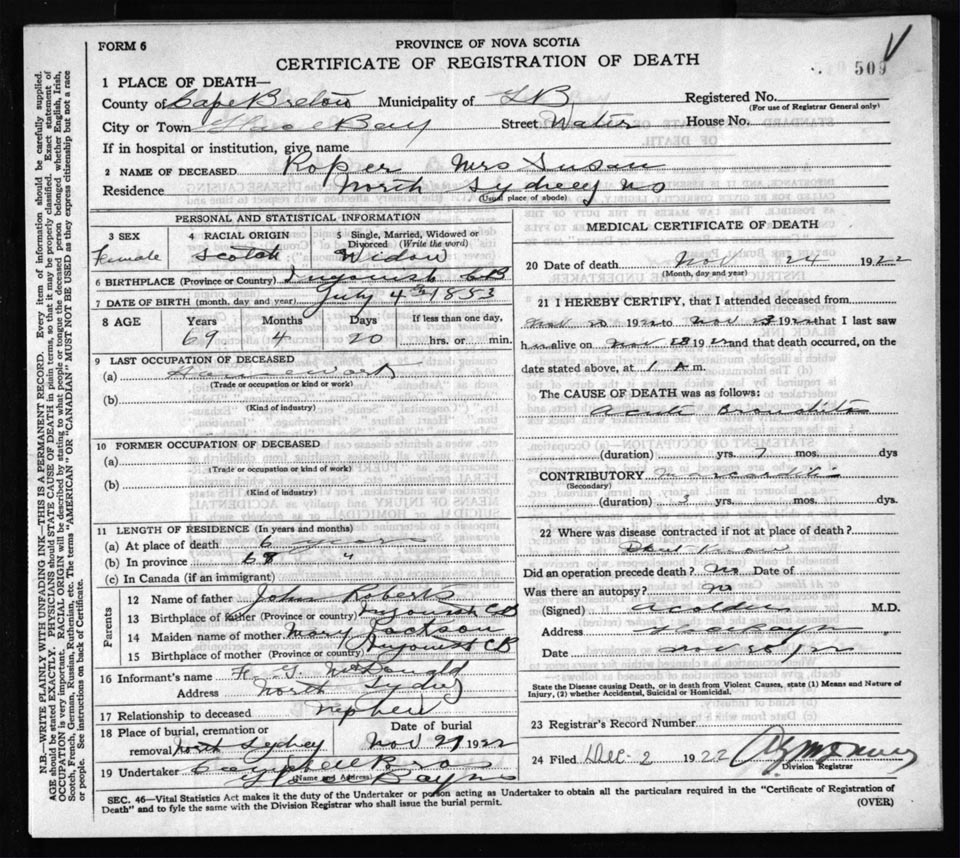 FORM 6
PROVINCE OF NOVA SCOTIA
CERTIFICATE OF REGISTRATION OF DEATH
509
1 PLACE OF DEATH—
County of Cape Breton Municipality of CB Registered No.
(For use of Registrar General only)
City or Town Glace Bay Street Water House No.
If in hospital or institution, give name
2 NAME OF DECEASED Roper Mrs Susan
Residence North Sydney NS
(Usual place of abode)
PERSONAL AND STATISTICAL INFORMATION
3 SEX 4 RACIAL ORIGIN 5 Single, Married, Widowed or Divorced (Write the word)
Female Scotch Widow
6 BIRTHPLACE (Province or Country) Ingonish CB
7 DATE OF BIRTH (month, day and year) July 4th 1853
8 AGE Years Months Days If less than one day,
69 4 20 hrs. or min.
9 LAST OCCUPATION OF DECEASED
(a) Housework
(Trade or occupation or kind or work)
(b)
(Kind of industry)
10 FORMER OCCUPATION OF DECEASED
(a)
(Trade or occupation or kind of work)
(b)
(Kind of industry)
11 LENGTH OF RESIDENCE (In years and months)
(a) At place of death 6 years
(b) In province 68 "
(c) In Canada (if an immigrant)
Parents
12 Name of father John Roberts
13 Birthplace of father (Province or country) Ingonish CB
14 Maiden name of mother Mary Jackson
15 Birthplace of mother (Province or country) Ingonish CB
16 Informant's name
Address North Sydney
17 Relationship to deceased Nephew
18 Place of burial, cremation or removal North Sydney
Date of burial
Nov 27 1922
19 Undertaker Campbell Bros
(Name and Address) Glace Bay NS
MEDICAL CERTIFICATE OF DEATH
20 Date of death Nov 24 1922
(Month, day and year)
21 I HEREBY CERTIFY, that I attended deceased from
Nov 20 1922 to Nov 23 1922 that I last saw
alive on Nov 1922 and that death occurred, on the
date stated above, at 1 A m.
The CAUSE OF DEATH was as follows:
Acute Bronchitis
(duration) yrs. 7 mos. dys
CONTRIBUTORY Myocarditis
(Secondary)
(duration) 3 yrs mos. dys.
22 Where was disease contracted if not at place of death?
Did an operation precede death? No Date of
Was there an autopsy? No
(Signed) M.D.
Address Glace Bay
Date Nov
State the Disease causing Death, or in death from Violent Causes, state (1) Means and Nature of Injury, (2) whether Accidental, Suicidal or Homicidal.
23 Registrar's Record Number
24 Filed Dec 2 1922
Division Registrar
SEC. 46—Vital Statistics Act makes it the duty of the Undertaker or person acting as Undertaker to obtain all the particulars required in the "Certificate of Registration of
Death" and to fyle the same with the Division Registrar who shall issue the burial permit.
(OVER)
N.B.—WRITE PLAINLY WITH UNFADING INK—THIS IS A PERMANENT RECORD. Every item of information should be carefully supplied.
AGE should be stated EXACTLY. PHYSICIANS should STATE CAUSE OF DEATH in plain terms, so that it may be properly classified. Exact statement of
OCCUPATION is very important. RACIAL ORIGIN will be described by stating to what people or tongue the deceased person belonged, whether English, Irish,
Scotch, French, German, Russian, Ruthenian, etc. The terms "AMERICAN" or "CANADIAN" MUST NOT BE USED as they express citizenship but not a race
or people. See instructions on back of Certificate.